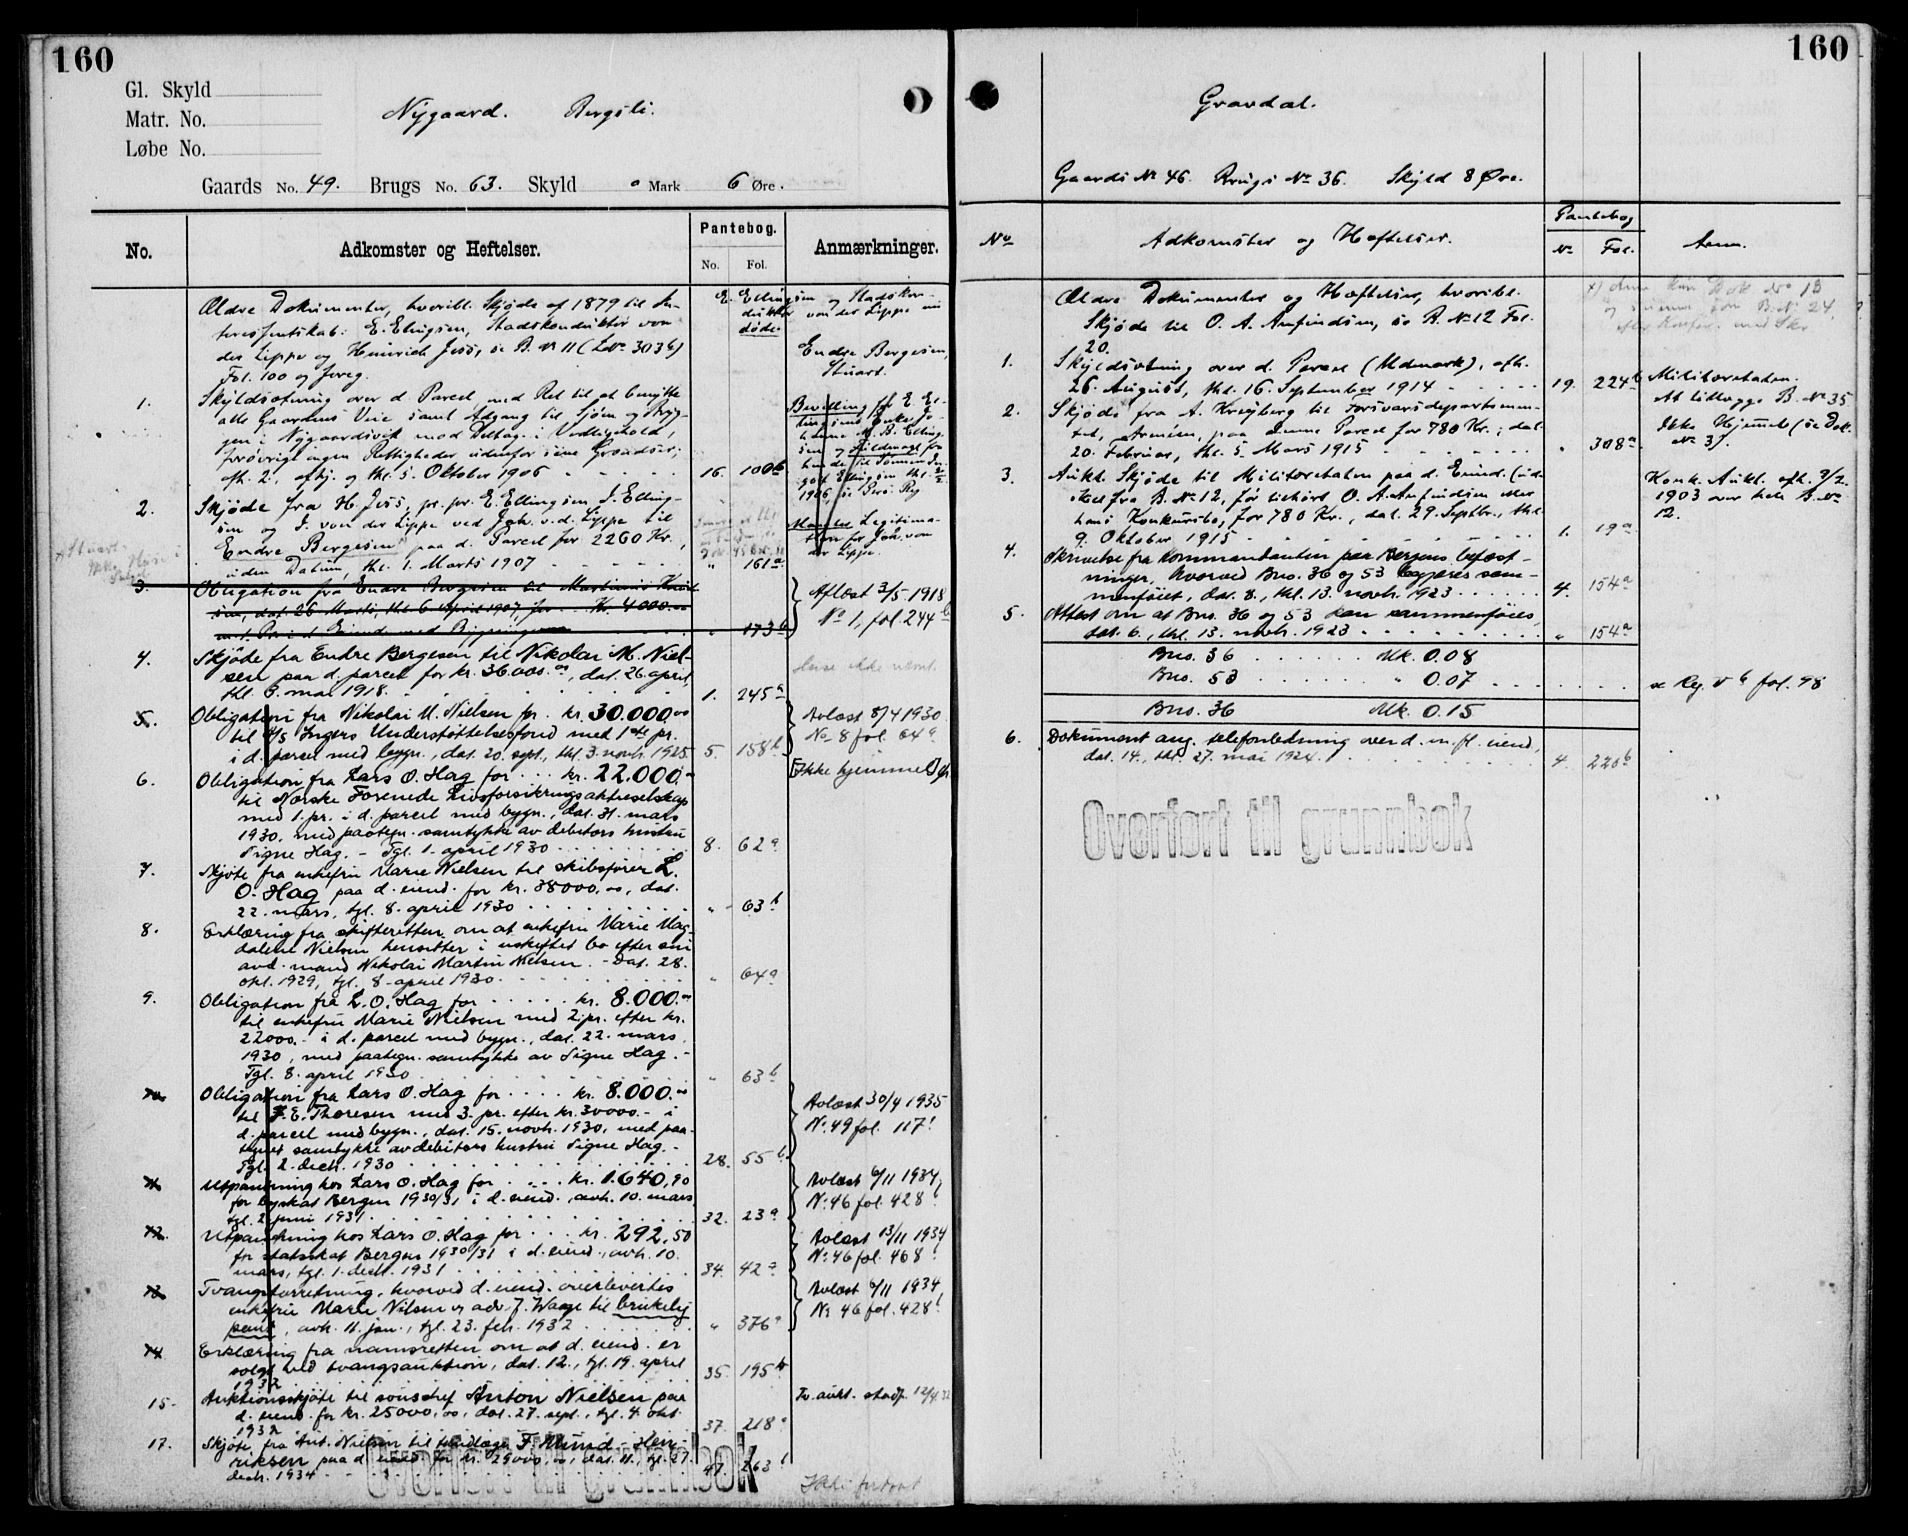 160
Gl. Skyld
Matr. No.
Løbe No.
Nygaard. Bergsli.
Gaards No. 49. Brugs No. 63. Skyld 0 Mark 6 Øre.
No.
Adkomster og Heftelser.
Pantebog.
No. Fol.
Anmærkninger.
Ældre Dokumenter, hvoribl. Skjøde af 1879 til In-
teressentskab: E. Ellingsen, Stadskonduktør von
der Lippe og Heinrich Jess, se B. No 11 (Lno 303 b)
Fol. 100 og foreg.
E. Ellingsen og Stadskon-
duktør von der Lippe
døde.
Endre Bergesen,
Stuart.
1. Skyldsætning over d. Parcel, med Ret til at benytte
alle Gaardens Veie samt Adgang til Sjøen og Bryg-
gen i Nygaardsvik mod Deltag. i Vedligehold,
forøvrigt ingen Rettigheder udenfor sine Grændser;
afh. 2., afhj. og thl. 5. Oktober 1906 16. 100 b
2. Skjøde fra H. Jess, pr. pr. E. Ellingsen, J. Elling-
sen og J. von der Lippe ved Joh. v. d. Lippe til
Endre Bergesen paa d. Parcel for 2260 Kr.,
uden Datum, thl. 1. Marts 1907 " 161 a
Legitima-
tion for Joh. von
der Lippe.
3. Obligation fra Endre Bergesen til
dat. 26 Marts, thl. 6 April 1907, for Kr. 4000.00
" 173 b
Aflæst 3/5 1918
No 1, fol. 244 b
4. Skjøde fra Endre Bergesen til Nikolai M. Niel-
sen paa d. parcel for kr. 36.000.00, dat. 26. april,
thl. 3. mai 1918. 1. 245 a
5. Obligation fra Nikolai M. Nielsen for kr. 30.000.00
til A/S Ingers Understøttelsesfond med 1ste pr.
i d. parcel med bygn., dat. 20. sept., thl. 3. novb. 1925 5. 158 b
Avlæst 8/4 1930
No 8 fol. 64 a
6. Obligation fra Lars O. Hag for kr. 22.000.-
til Norske Forenede Livsforsikringsaktieselskap
med 1. pr. i d. parcel med bygn., dat. 31. mars
1930, med paategn. samtykke av debitors hustru
Signe Hag. - Tgl. 1. april 1930 8. 62 a
[Ikke hjemmel]
7. Skjøte fra enkefru Marie Nielsen til skibsfører L.
O. Hag paa d. eiend. for kr. 38000.00, dat.
22. mars, tgl. 8. april 1930 " 63 b
8. Erklæring fra skifteretten om at enkefru Marie Mag-
dalene Nielsen hensitter i uskiftet bo efter sin
avd. mand Nikolai Martin Nielsen. - Dat. 28.
okt. 1929, tgl. 8. april 1930 " 64 a
9. Obligation fra L. O. Hag for kr. 8.000.-
til enkefru Marie Nielsen med 2. pr. efter kr.
22000.- i d. parcel med bygn., dat. 22. mars
1930, med paategn. samtykke av Signe Hag. -
Tgl. 8. april 1930 " 63 b
10. Obligation fra Lars O. Hag for kr. 8.000.-
til F. E. Thoresen med 3. pr. efter kr. 30000.- i
d. parcel med bygn., dat. 15. novb. 1930, med paa-
tegnet samtykke av debitors hustru Signe Hag. -
Tgl. 2. decb. 1930 28. 55 b
Avlæst 30/4 1935
No. 49 fol. 117
11. Utpantning hos Lars O. Hag for kr. 1.640,90
for byskat Bergen 1930/31 i d. eiend., avh. 10. mars
tgl. 2. juni 1931 32. 23 a
Avlæst 6/11 1934,
No. 46 fol. 428
12. Utpantning hos Lars O. Hag for kr. 292,50
for statsskat Bergen 1930/31 i d. eiend., avh. 10.
mars, tgl. 1. decb. 1931 34. 42 a
Avlæst 13/11 1934
No. 46 fol. 468
13. Tvangsforretning, hvorved d. eiend. overlevertes
enkefru Marie Nilsen v. adv. J. Waage til brukelig
pant, avh. 11. jan., tgl. 23. feb. 1932 " 376 a
Avlæst 6/11 1934
No. 46 fol. 428
14. Erklæring fra namsretten om at d. eiend. er
solgt ved tvangsauktion, dat. 12., tgl. 19. april
1932 35. 195 b
15. Auktionsskjøte til Anton Nielsen paa
d. eiend. for kr. 25000.00, dat. 27. sept., tgl. 4. okt.
1932 37. 218 a
Tv. aukt. stadf. 12/4 32
17. Skjøte fra Ant. Nielsen til tandlæge F. Mund-Hen-
riksen paa d. eiend. for kr. 29000.00, dat. 11., tgl. 27.
decb. 1934 47. 263
Overført til grunnbok
160
Gravdal.
Gaards No 46. Brugs No 36. Skyld 8 Øre.
No
Adkomster og Hæftelser.
Pantebog
No Fol.
Anm.
Ældre Dokumenter og Hæftelser, hvoribl.
Skjøde til O. A. Amfindsen, se B. No 12 Fol.
20.
1. Skyldsætning over d. Parcel (Udmark), afh.
26. August, thl. 16. September 1914 19. 224 b
Militæretaten.
At tillægge B. No 35
2. Skjøde fra A. Kreyberg til Forsvarsdepartemen-
tet, Arméen, paa denne Parcel for 780 Kr.; dat.
20. Februar, thl. 5. Mars 1915 " 308 a
Ikke Hjemmel (se Dok.
No 3).
3. Aukt. Skjøde til Militæretaten paa d. Eiend. (ud-
skilt fra B. No 12, før tilhørt O. A. Amfindsen eller
hans Konkursbo, for 780 Kr., dat. 29. Septbr., thl.
9. Oktober 1915 1. 19 a
Konk. Aukt. afh. 3/2
1903 over hele B. No
12.
4. Skrivelse fra kommandanten paa Bergens befæst-
ninger, hvorved Bno. 36 og 53 begjæres sam-
menføiet, dat. 8., thl. 13. novb. 1923 4. 154 a
5. Attest om at Bno. 36 og 53 kan sammenføies,
dat. 6., thl. 13. novb. 1923 " 154 a
Bno. 36 Mk. 0.08
Bno. 53 " 0.07
se Reg. 5 b fol. 98
Bno. 36 Mk. 0.15
6. Dokument ang. telefonledning over d. m. fl. eiend.,
dat. 14., thl. 27. mai 1924. 4. 226 b
Overført til grunnbok